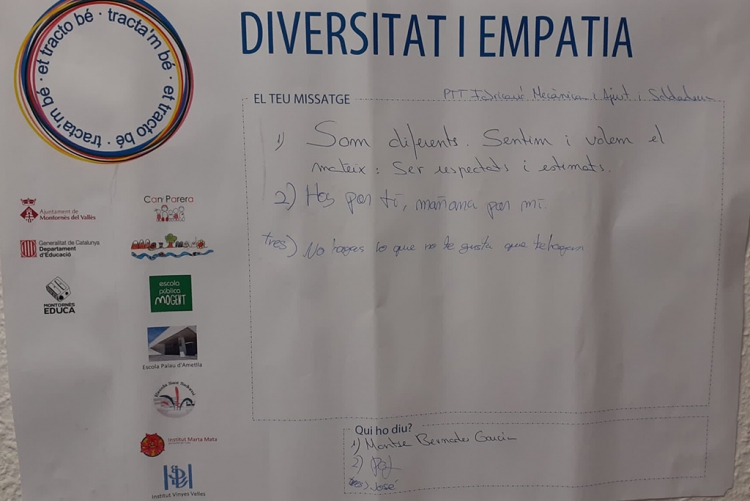 et tracto bé · tracta'm bé · et tracto bé · tracta'm bé ·
DIVERSITAT I EMPATIA
EL TEU MISSATGE
PTT Fabricació Mecànica i Ajust i Soldadura
1) Som diferents. Sentim i volem el
mateix: Ser respectats i estimats.
2) Hoy por ti, mañana por mí
tres) No hagas lo que no te gusta que te hagan
Ajuntament de
Montornès del Vallès
Can Parera
Generalitat de Catalunya
Departament
d'Educació
MONTORNÈS
EDUCA
escola
pública
MOGENT
Escola Palau d'Ametlla
Institut Marta Mata
Institut Vinyes Velles
Qui ho diu?
1) Montse Bermudez Garcia
2)
tres) José